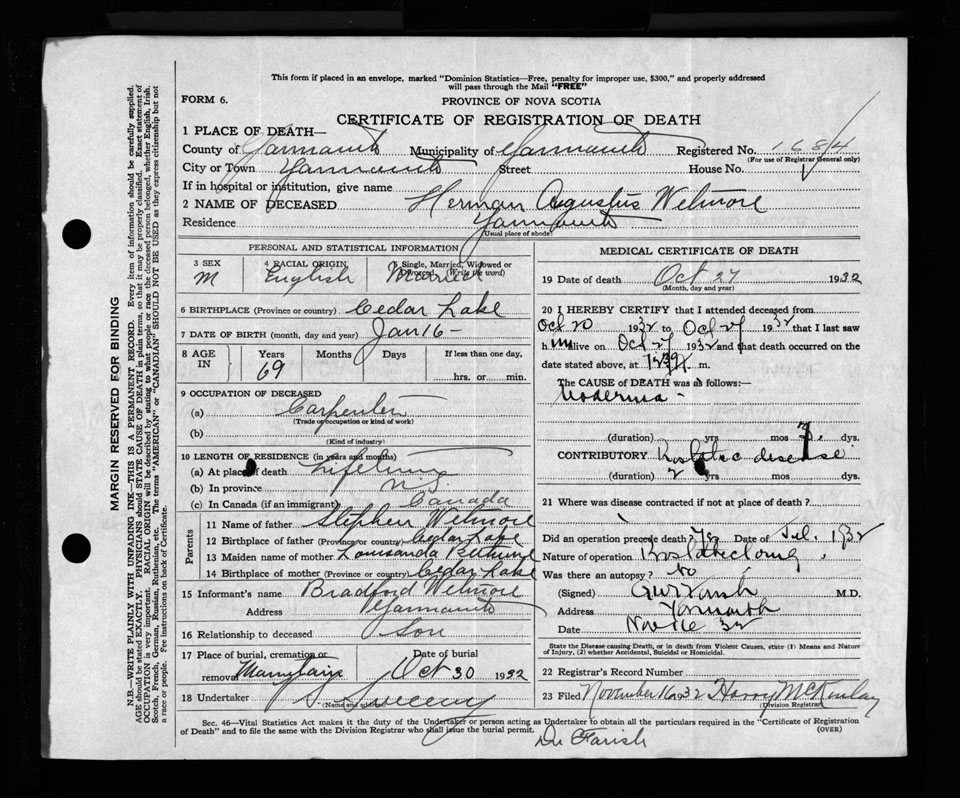 This form if placed in an envelope, marked "Dominion Statistics—Free, penalty for improper use, $300," and properly addressed
will pass through the Mail "FREE"
FORM 6.
PROVINCE OF NOVA SCOTIA
CERTIFICATE OF REGISTRATION OF DEATH
1 PLACE OF DEATH—
County of Yarmouth Municipality of Yarmouth Registered No. 1684
(For use of Registrar General only)
City or Town Yarmouth Street House No.
If in hospital or institution, give name
2 NAME OF DECEASED Herman Augustus Wetmore
Residence Yarmouth
(Usual place of abode)
PERSONAL AND STATISTICAL INFORMATION
3 SEX 4 RACIAL ORIGIN 5 Single, Married, Widowed or
Divorced (Write the word)
M English Married
6 BIRTHPLACE (Province or country) Cedar Lake
7 DATE OF BIRTH (month, day and year) Jan 16 —
8 AGE IN Years Months Days If less than one day,
69 hrs. or min.
9 OCCUPATION OF DECEASED
(a) Carpenter
(Trade or occupation or kind of work)
(b)
(Kind of industry)
10 LENGTH OF RESIDENCE (in years and months)
(a) At place of death Lifetime
(b) In province N.S.
(c) In Canada (if an immigrant) Canada
Parents
11 Name of father Stephen Wetmore
12 Birthplace of father (Province or country) Cedar Lake
13 Maiden name of mother
14 Birthplace of mother (Province or country) Cedar Lake
15 Informant's name Bradford Wetmore
Address Yarmouth
16 Relationship to deceased Son
17 Place of burial, cremation or removal Date of burial
Oct 30 1932
18 Undertaker Sweeny
(Name and address)
MEDICAL CERTIFICATE OF DEATH
19 Date of death Oct 27 1932
(Month, day and year)
20 I HEREBY CERTIFY that I attended deceased from
Oct 20 1932 to Oct 27 1932 that I last saw
him alive on Oct 27 1932 and that death occurred on the
date stated above, at m.
The CAUSE of DEATH was as follows:—
(duration) yrs mos dys.
CONTRIBUTORY disease
(duration) 2 yrs mos dys.
21 Where was disease contracted if not at place of death?
Did an operation precede death? Yes Date of 1932
Nature of operation
Was there an autopsy? No
(Signed) M.D.
Address Yarmouth
Date 32
State the Disease causing Death, or in death from Violent Causes, state (1) Means and
Nature of Injury, (2) whether Accidental, Suicidal or Homicidal.
22 Registrar's Record Number
23 Filed November 16 1932 Harry McKinlay
(Division Registrar)
Sec. 46—Vital Statistics Act makes it the duty of the Undertaker or person acting as Undertaker to obtain all the particulars required in the "Certificate of Registration
of Death" and to file the same with the Division Registrar who shall issue the burial permit.
(OVER)
Dr Farish
MARGIN RESERVED FOR BINDING
N.B.—WRITE PLAINLY WITH UNFADING INK—THIS IS A PERMANENT RECORD. Every item of information should be carefully supplied.
AGE should be stated EXACTLY. PHYSICIANS should STATE CAUSE OF DEATH in plain terms, so that it may be properly classified. Exact statement of
OCCUPATION is very important. RACIAL ORIGIN will be described by stating to what people or race the deceased person belonged, whether English, Irish,
Scotch, French, German, Russian, Ruthenian, etc. The terms "AMERICAN" or "CANADIAN" SHOULD NOT BE USED as they express citizenship but not
a race or people. Fee instructions on back of Certificate.